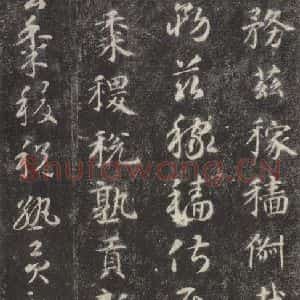 務茲稼穡俶
務茲稼穡俶
黍稷稅熟貢新
黍稷稅熟貢
Shufawang.CN